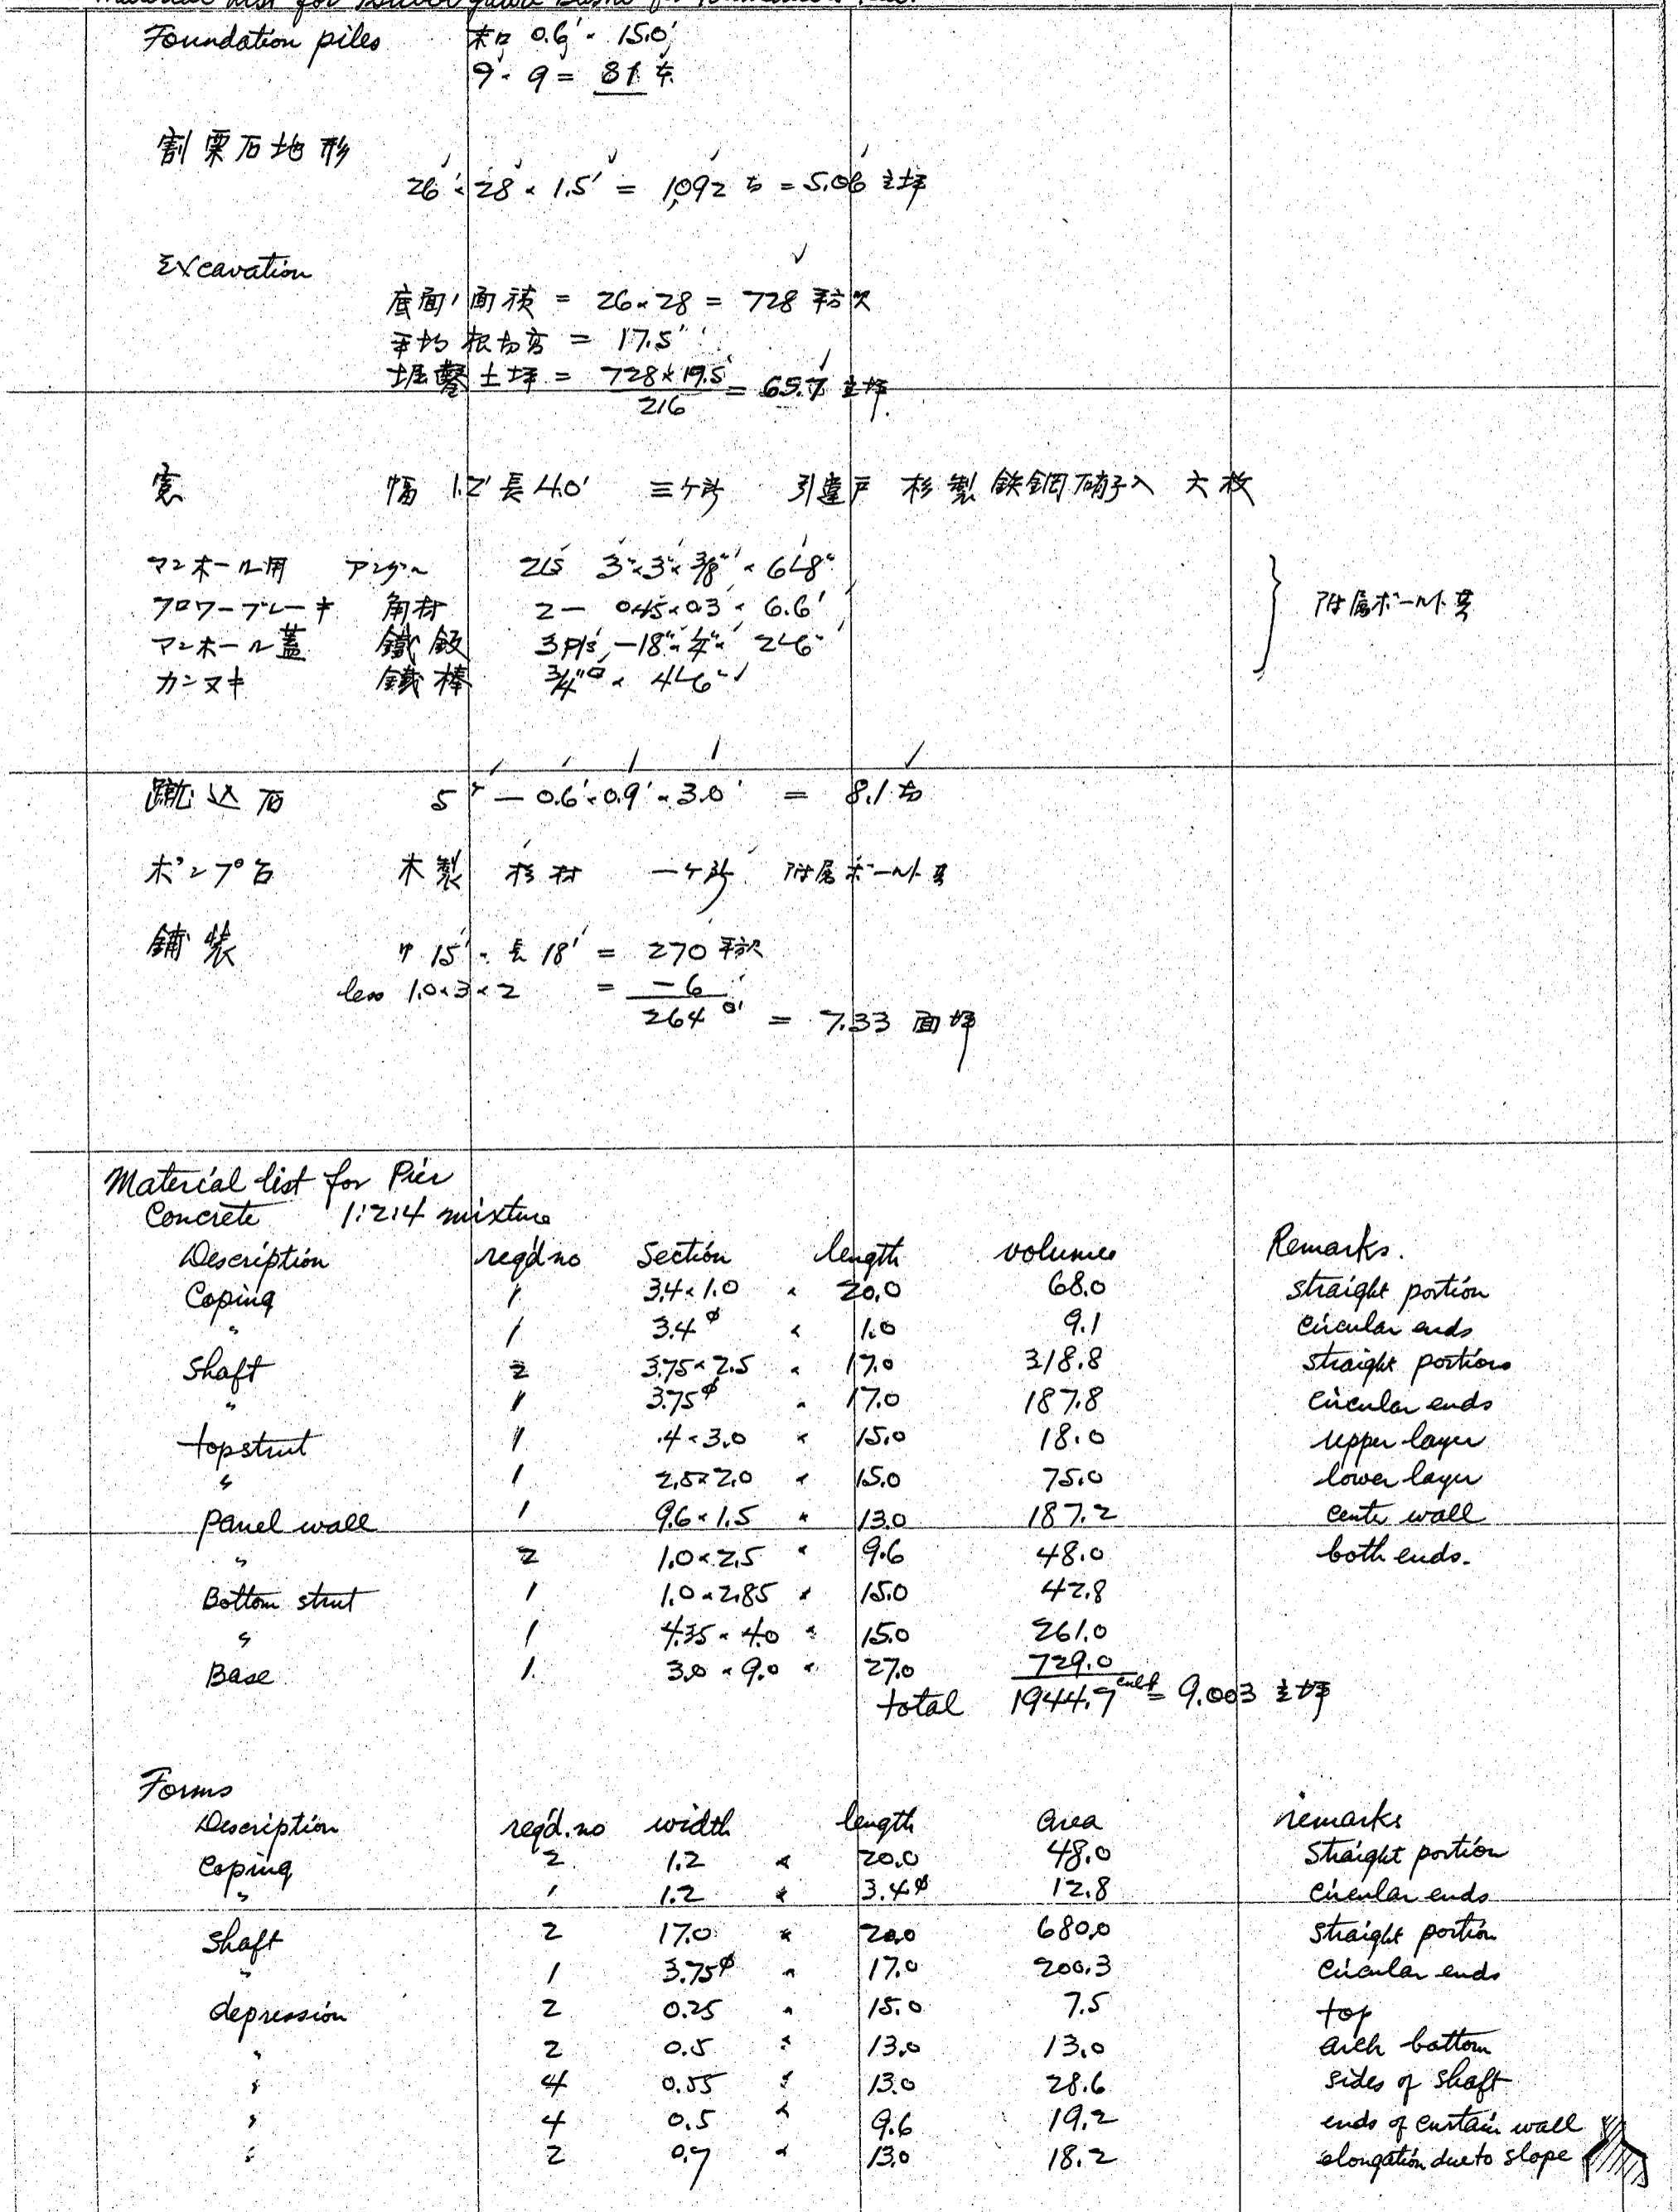 Material list for
Foundation piles 末口 0.6' × 15.0'
9 × 9 = 81 本
割栗石地形
26' × 28 × 1.5' = 1,092 = 5.06 立坪
Excavation
底面ノ面積 = 26 × 28 = 728 平方尺
平均根切高 = 17.5'
堀鑿土坪 = 728 × 19.5 / 216 = 65.7 立坪
窓 幅 1.2' 長 4.0' 三ヶ所 引違戸 杉製鉄網硝子入 六枚
マンホール用 アングル 2Ls 3" × 3" × 3/8" × 6'-8"
フロワープレーキ 角材 2 — 0.45 × 0.3 × 6.6'
マンホール蓋 鐵鈑 3 pls — 18" × 1/4" × 2'-6"
カンヌキ 鐵棒 3/4" × 4'-6"
附属ボールト共
蹴込石 5 — 0.6' × 0.9' × 3.0' = 8.1
ポンプ台 木製 杉材 一ヶ所 附属ボールト共
鋪装 巾 15' × 長 18' = 270 平方尺
less 1.0 × 3 × 2 = -6
264 = 7.33 面坪
Material list for Pier
Concrete 1:2:4 mixture
Description req'd no Section length volumes Remarks.
Coping 1 3.4 × 1.0 × 20.0 68.0 straight portion
" 1 3.4 φ × 1.0 9.1 circular ends
Shaft 2 3.75 × 2.5 × 17.0 318.8 straight portions
" 1 3.75 φ × 17.0 187.8 circular ends
top strut 1 .4 × 3.0 × 15.0 18.0 upper layer
" 1 2.5 × 2.0 × 15.0 75.0 lower layer
Panel wall 1 9.6 × 1.5 × 13.0 187.2 cente wall
" 2 1.0 × 2.5 × 9.6 48.0 both ends.
Bottom strut 1 1.0 × 2.85 × 15.0 42.8
" 1 4.35 × 4.0 × 15.0 261.0
Base 1. 3.0 × 9.0 × 27.0 729.0
total 1944.7 cu ft = 9.003 立坪
Forms
Description req'd. no width length area remarks
Coping 2 1.2 × 20.0 48.0 Straight portion
" 1 1.2 × 3.4 φ 12.8 circular ends
Shaft 2 17.0 × 20.0 680.0 Straight portion
" 1 3.75 φ × 17.0 200.3 circular ends
depression 2 0.25 × 15.0 7.5 top
" 2 0.5 × 13.0 13.0 arch bottom
" 4 0.55 × 13.0 28.6 sides of shaft
" 4 0.5 × 9.6 19.2 ends of curtain wall
" 2 0.7 × 13.0 18.2 elongation due to slope